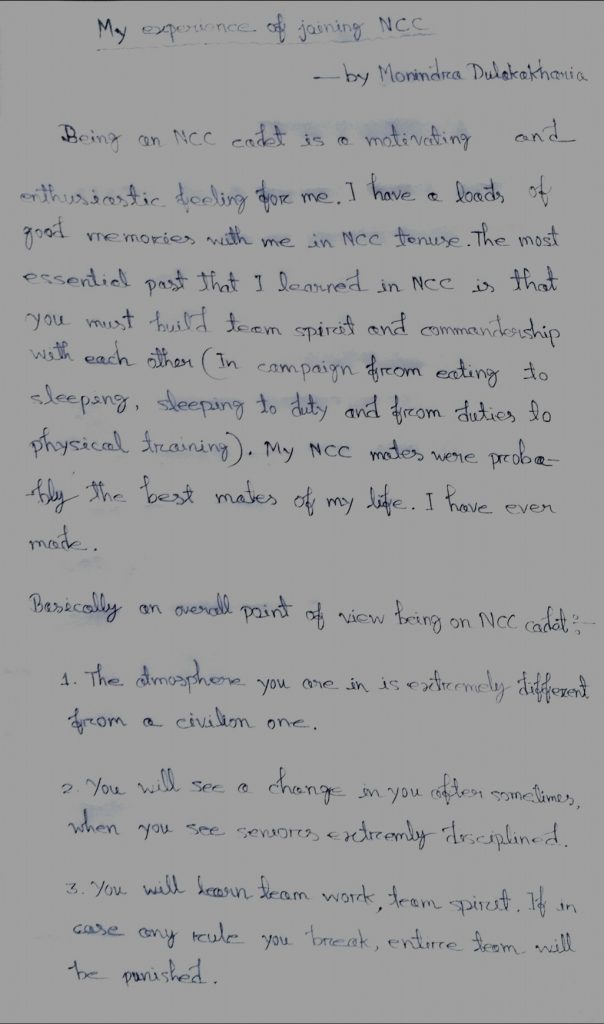 My experience of joining NCC
— by Monindra Dulakakharia
Being an NCC cadet is a motivating and
enthusiastic feeling for me. I have a loads of
good memories with me in NCC tenure. The most
essential part that I learned in NCC is that
you must build team spirit and commandership
with each other (In campaign from eating to
sleeping, sleeping to duty and from duties to
physical training). My NCC mates were proba-
bly the best mates of my life. I have ever
made.
Basically an overall point of view being an NCC cadet :-
1. The atmosphere you are in is extremely different
from a civilian one.
2. You will see a change in you after sometimes,
when you see seniors extremly disciplined.
3. You will learn team work, team spirit. If in
case any rule you break, entire team will
be punished.